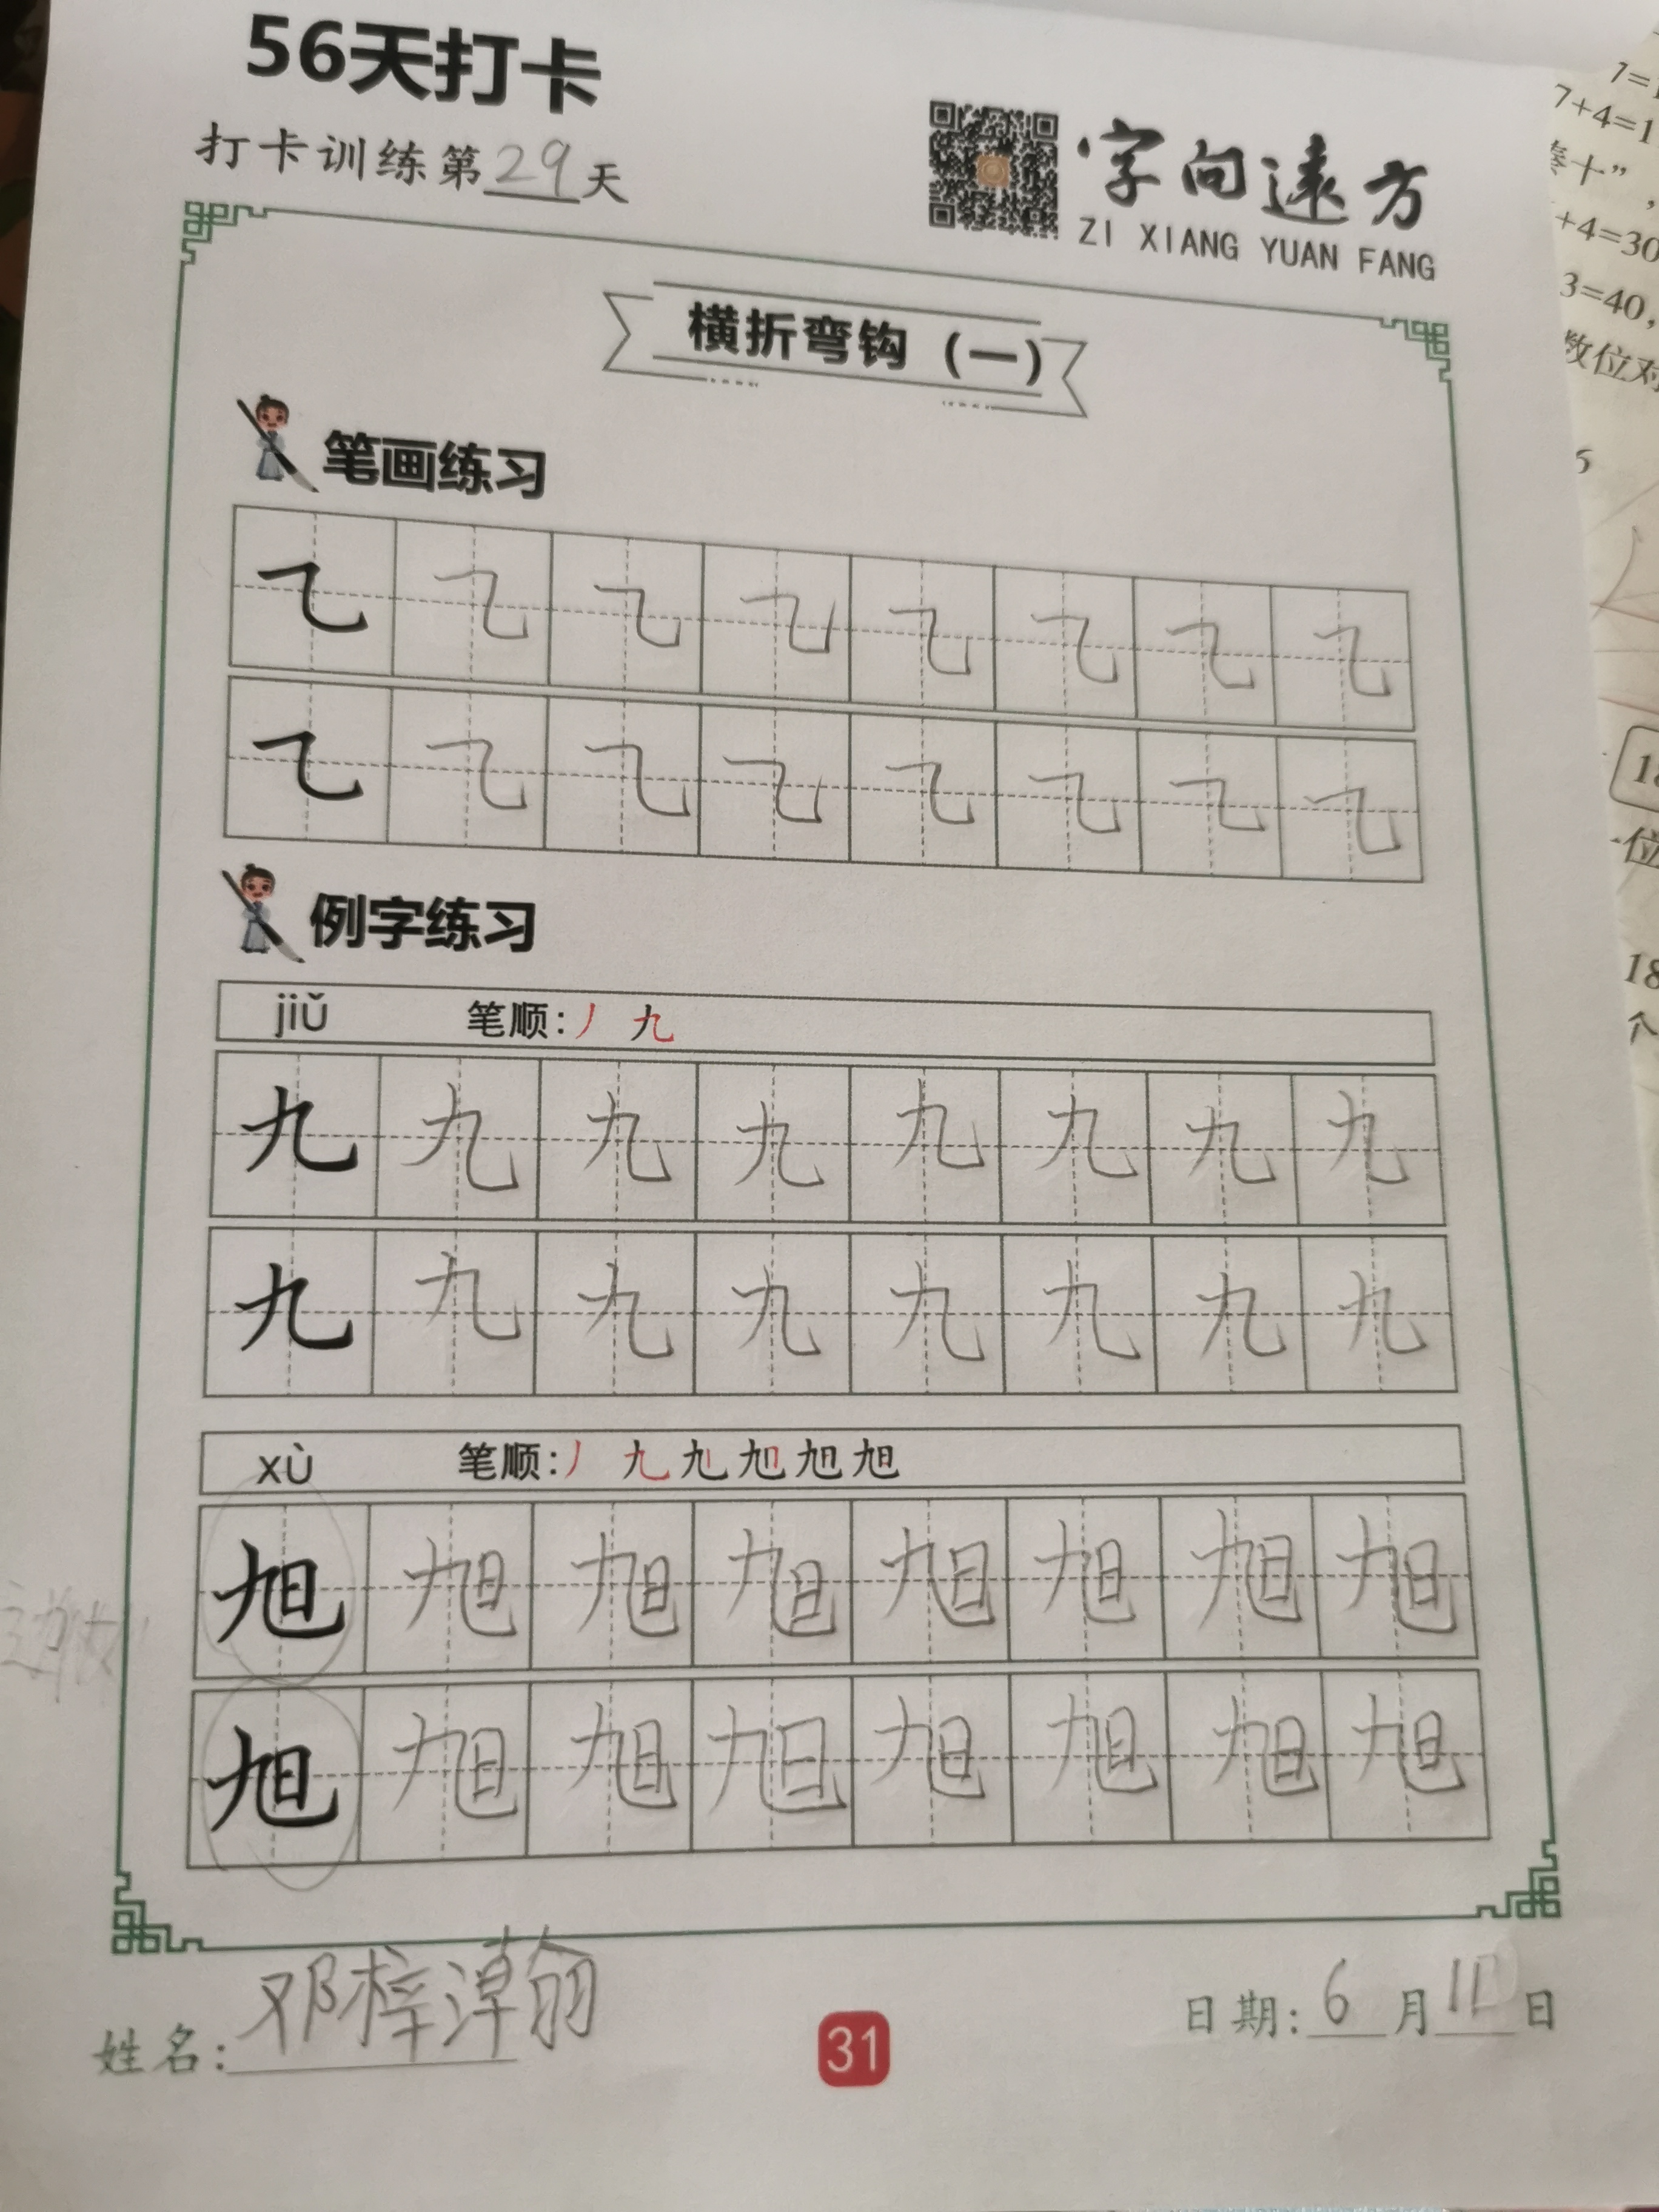 56天打卡
打卡训练第29天
字向远方
ZI XIANG YUAN FANG
横折弯钩（一）
笔画练习
㇈ ㇈ ㇈ ㇈ ㇈ ㇈ ㇈ ㇈
㇈ ㇈ ㇈ ㇈ ㇈ ㇈ ㇈ ㇈
例字练习
jiǔ 笔顺：丿 九
九 九 九 九 九 九 九 九
九 九 九 九 九 九 九 九
xù 笔顺：丿 九 旭 旭 旭
旭 旭 旭 旭 旭 旭 旭 旭
旭 旭 旭 旭 旭 旭 旭 旭
姓名：邓梓
31
日期：6月日
7+4=1
凑十”，
+4=30
3=40，
数位对
5
18
位
18
个